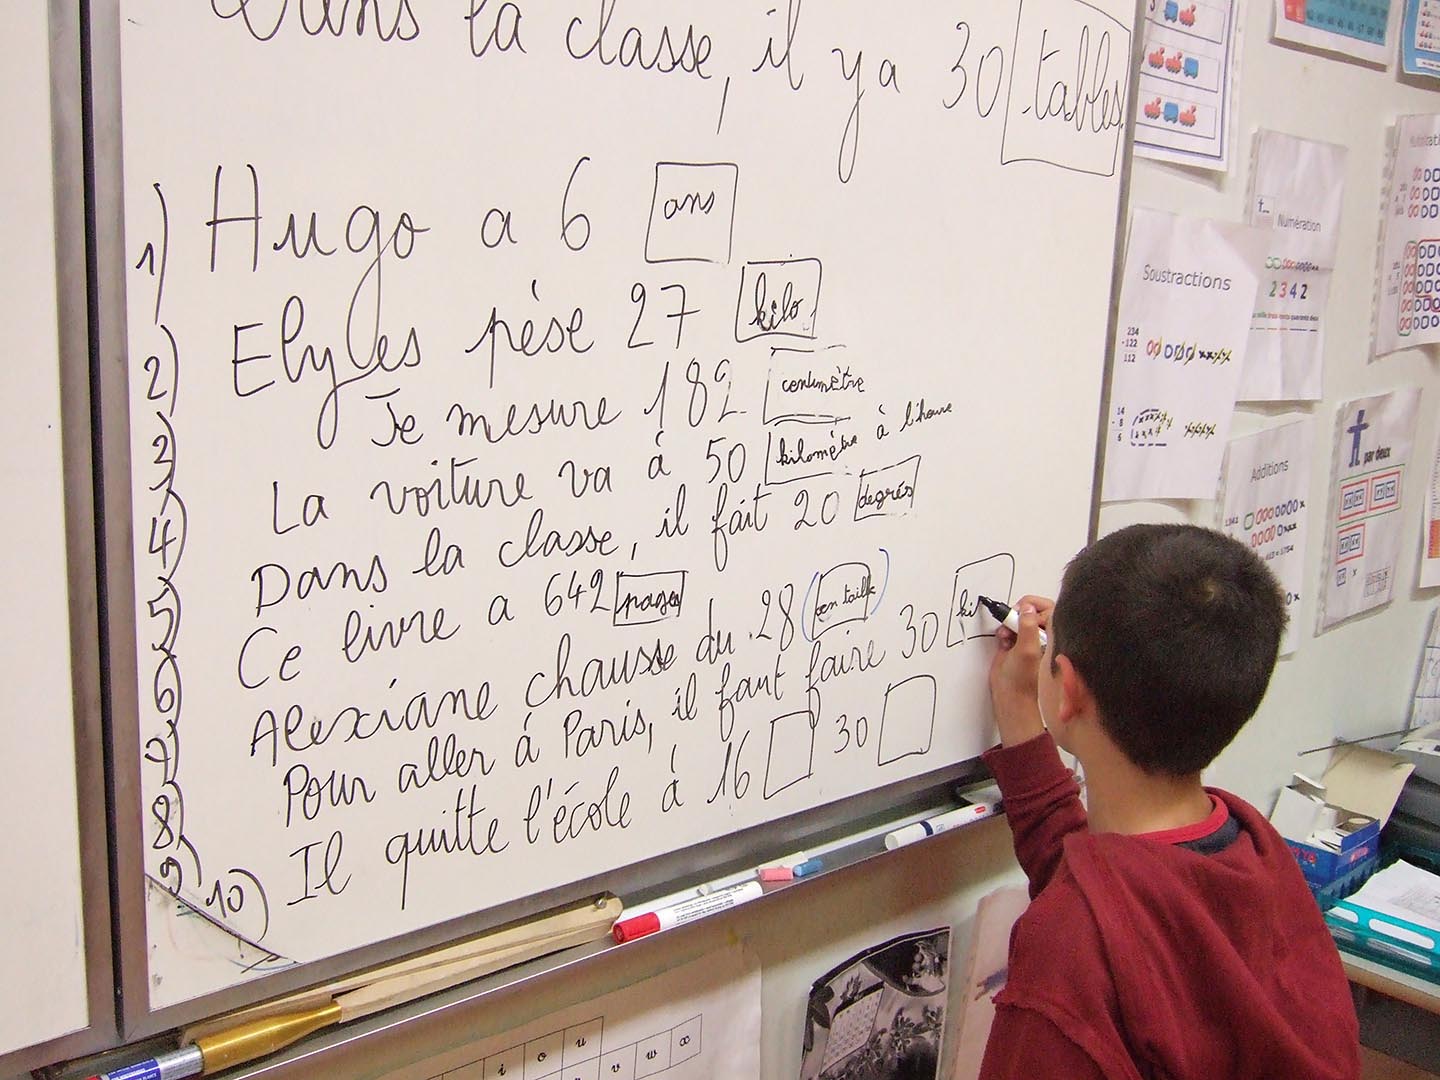 Dans la classe, il y a 30 tables
1) Hugo a 6 ans
2) Elyes pèse 27 kilo
Je mesure 182 centimètre
La voiture va à 50 kilomètre à l'heure
4) Dans la classe, il fait 20 degrés
5) Ce livre a 642 pages
6) Alexiane chausse du 28 (en taille)
Pour aller à Paris, il faut faire 30 kil
8) Il quitte l'école à 16 30
9)
10)
Soustractions
234
-122
112
14
- 8
6
Numération
2 3 4 2
Additions
par deux
i o u
v w x